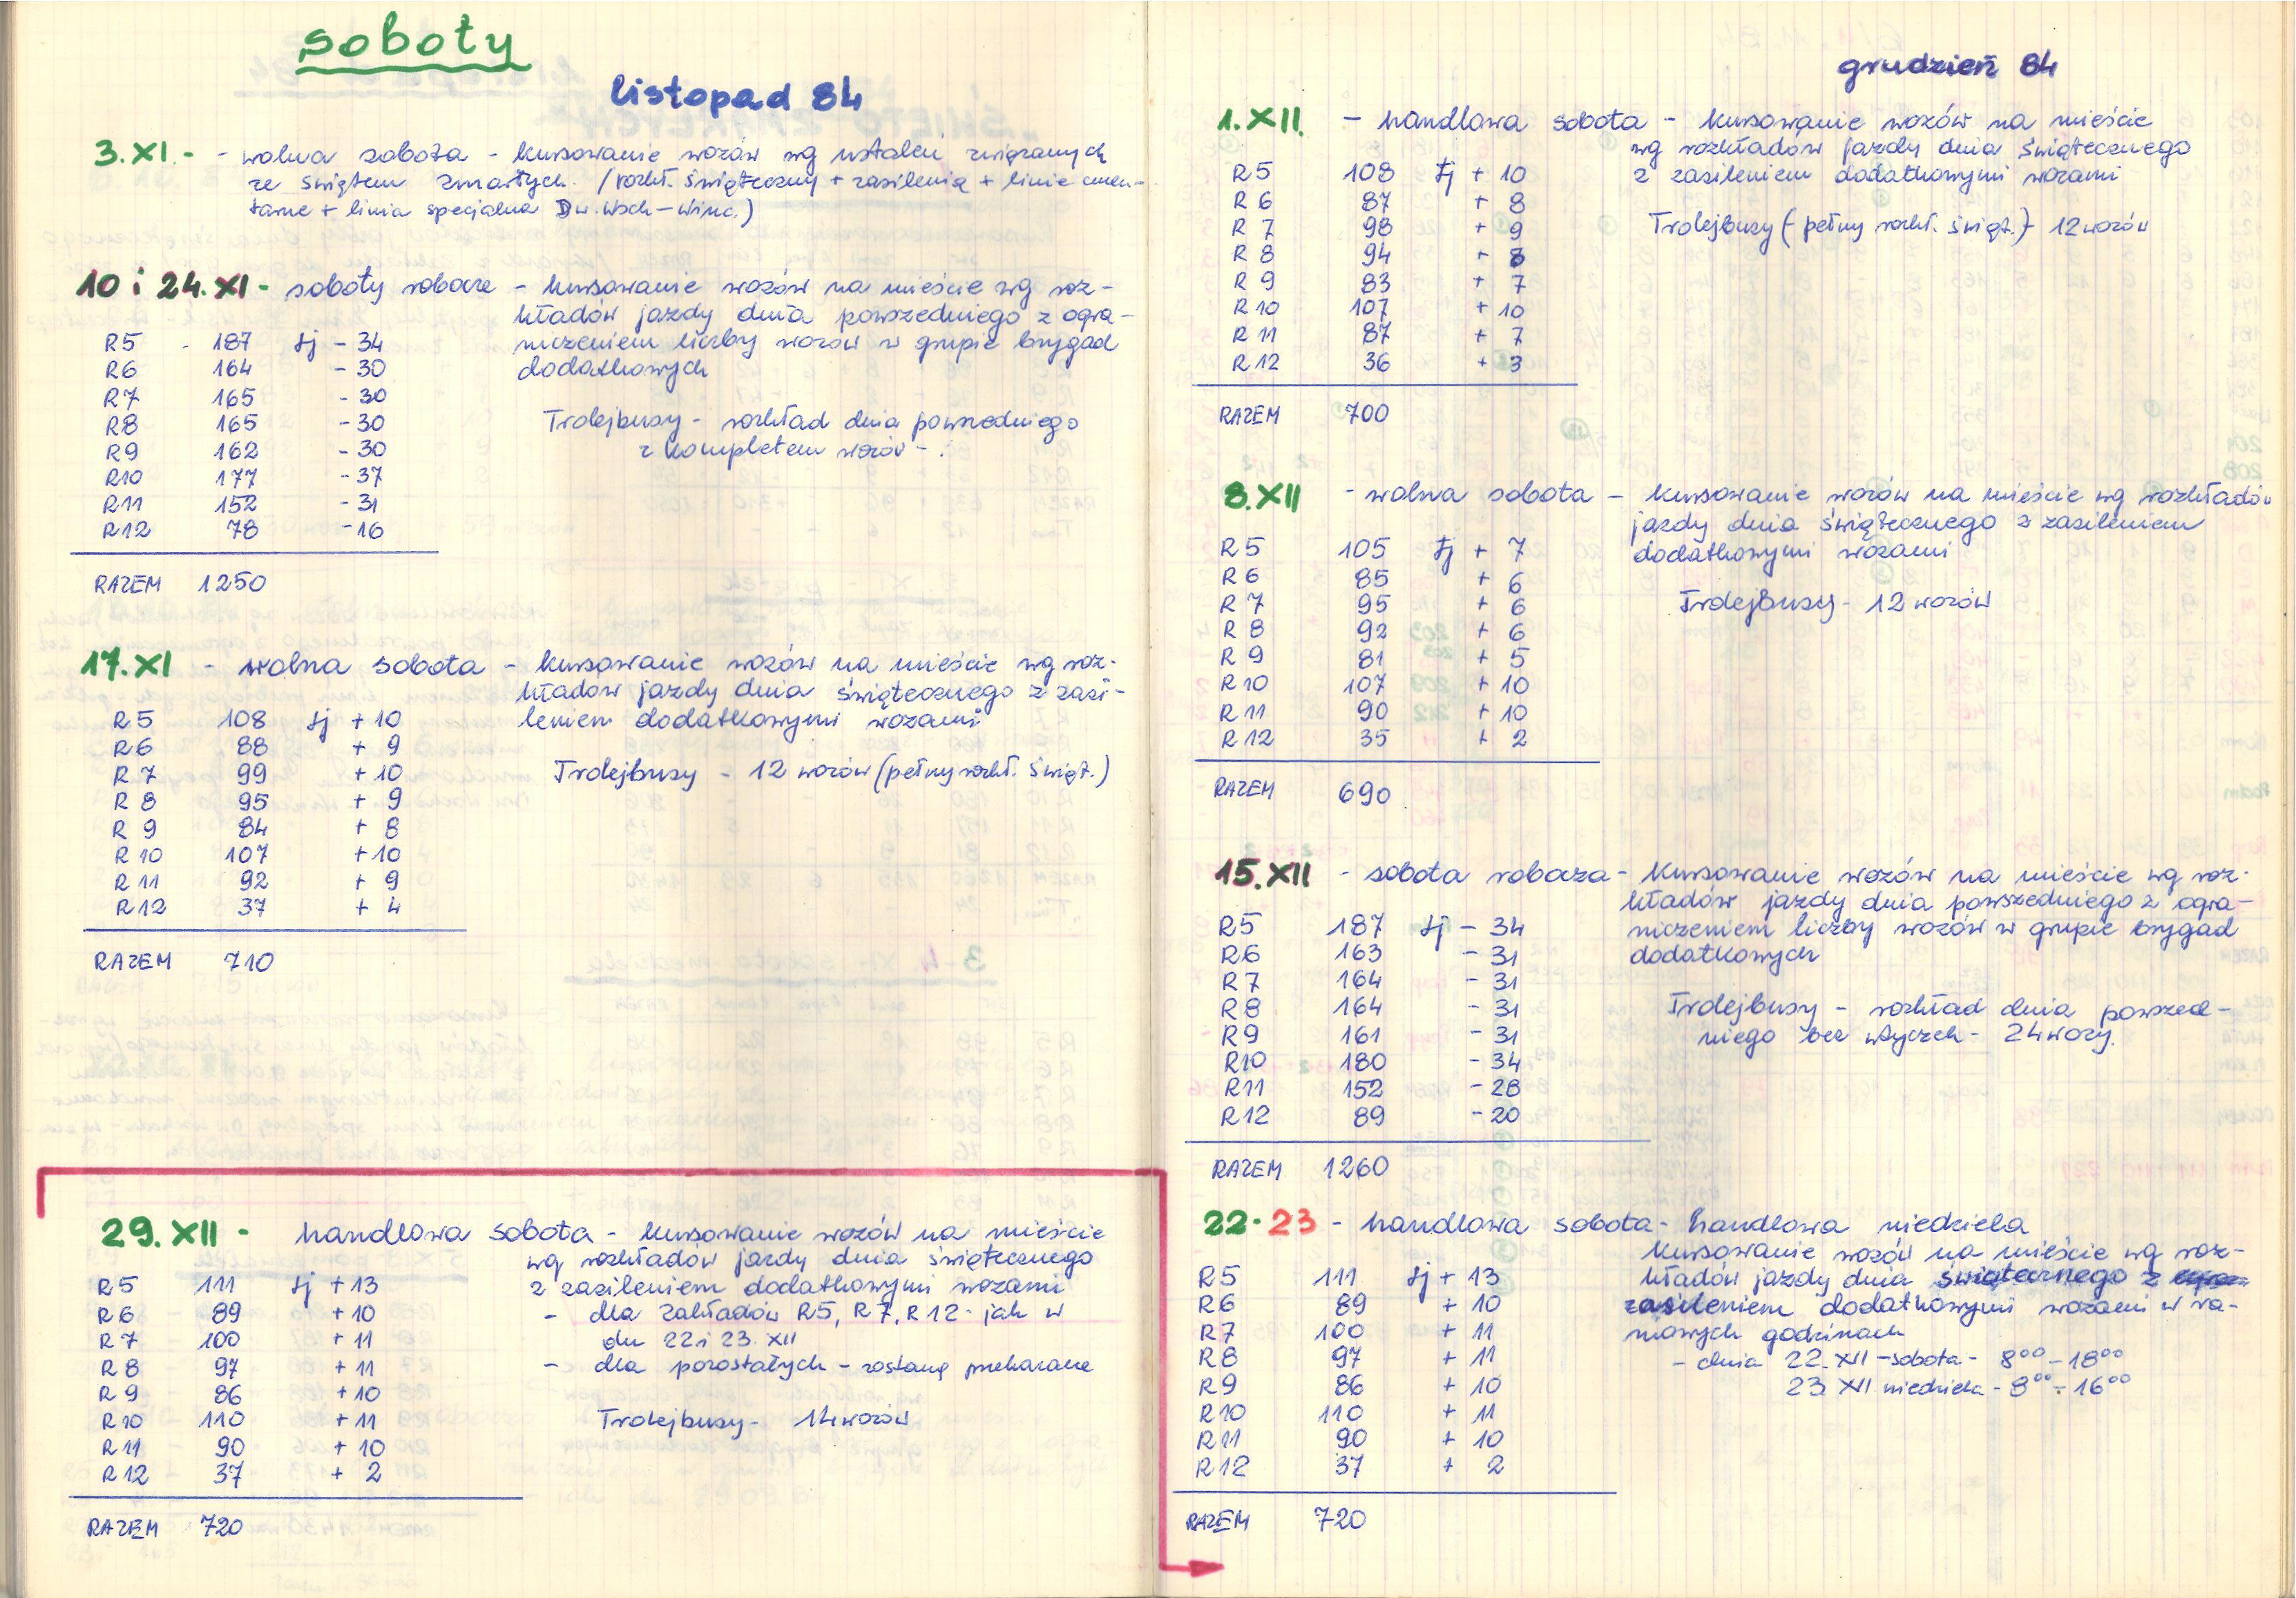 soboty
listopad 84
3.XI. - - wolna sobota - kursowanie wozów wg ustaleń związanych
ze świętem zmarłych. (rozkł. świąteczny + zasilenia + linie cmen-
tarne + linia specjalna Dw. Wsch - Winc.)
10 i 24.XI - soboty robocze - kursowanie wozów na mieście wg roz-
kładów jazdy dnia powszedniego z ogra-
R5 187 tj - 34 niczeniem liczby wozów w grupie brygad
R6 164 - 30 dodatkowych
R7 165 - 30
R8 165 - 30 Trolejbusy - rozkład dnia powszedniego
R9 162 - 30 z kompletem wozów -
R10 177 - 37
R11 152 - 31
R12 78 - 16
RAZEM 1250
17.XI - wolna sobota - kursowanie wozów na mieście wg roz-
kładów jazdy dnia świątecznego z zasi-
R5 108 tj + 10 leniem dodatkowymi wozami
R6 88 + 9
R7 99 + 10 Trolejbusy - 12 wozów (pełny rozkł. świąt.)
R8 95 + 9
R9 84 + 8
R10 107 + 10
R11 92 + 9
R12 37 + 4
RAZEM 710
29.XII - handlowa sobota - kursowanie wozów na mieście
wg rozkładów jazdy dnia świątecznego
R5 111 tj + 13 z zasileniem dodatkowymi wozami
R6 89 + 10 - dla zakładów R5, R7, R12 jak w
R7 100 + 11 dn 22 i 23. XII
R8 97 + 11 - dla pozostałych - zostaną przekazane
R9 86 + 10
R10 110 + 11 Trolejbusy - 14 wozów
R11 90 + 10
R12 37 + 2
RAZEM 720
grudzień 84
1.XII. - handlowa sobota - kursowanie wozów na mieście
wg rozkładów jazdy dnia świątecznego
R5 108 tj + 10 z zasileniem dodatkowymi wozami
R6 87 + 8
R7 98 + 9 Trolejbusy (pełny rozkł. świąt.) - 12 wozów
R8 94 + 8
R9 83 + 7
R10 107 + 10
R11 87 + 7
R12 36 + 3
RAZEM 700
8.XII - wolna sobota - kursowanie wozów na mieście wg rozkładów
jazdy dnia świątecznego z zasileniem
R5 105 tj + 7 dodatkowymi wozami
R6 85 + 6
R7 95 + 6 Trolejbusy - 12 wozów
R8 92 + 6
R9 81 + 5
R10 107 + 10
R11 90 + 10
R12 35 + 2
RAZEM 690
15.XII - sobota robocza - kursowanie wozów na mieście wg roz-
kładów jazdy dnia powszedniego z ogra-
R5 187 tj - 34 niczeniem liczby wozów w grupie brygad
R6 163 - 31 dodatkowych
R7 164 - 31
R8 164 - 31 Trolejbusy - rozkład dnia powszed-
R9 161 - 31 niego bez wtyczek - 24 wozy.
R10 180 - 34
R11 152 - 28
R12 89 - 20
RAZEM 1260
22-23 - handlowa sobota - handlowa niedziela
kursowanie wozów na mieście wg roz-
R5 111 tj + 13 kładów jazdy dnia świątecznego z
R6 89 + 10 zasileniem dodatkowymi wozami w ra-
R7 100 + 11 mowych godzinach
R8 97 + 11 - dnia 22.XII - sobota - 8⁰⁰ - 18⁰⁰
R9 86 + 10 23 XII niedziela - 8⁰⁰ - 16⁰⁰
R10 110 + 11
R11 90 + 10
R12 37 + 2
RAZEM 720